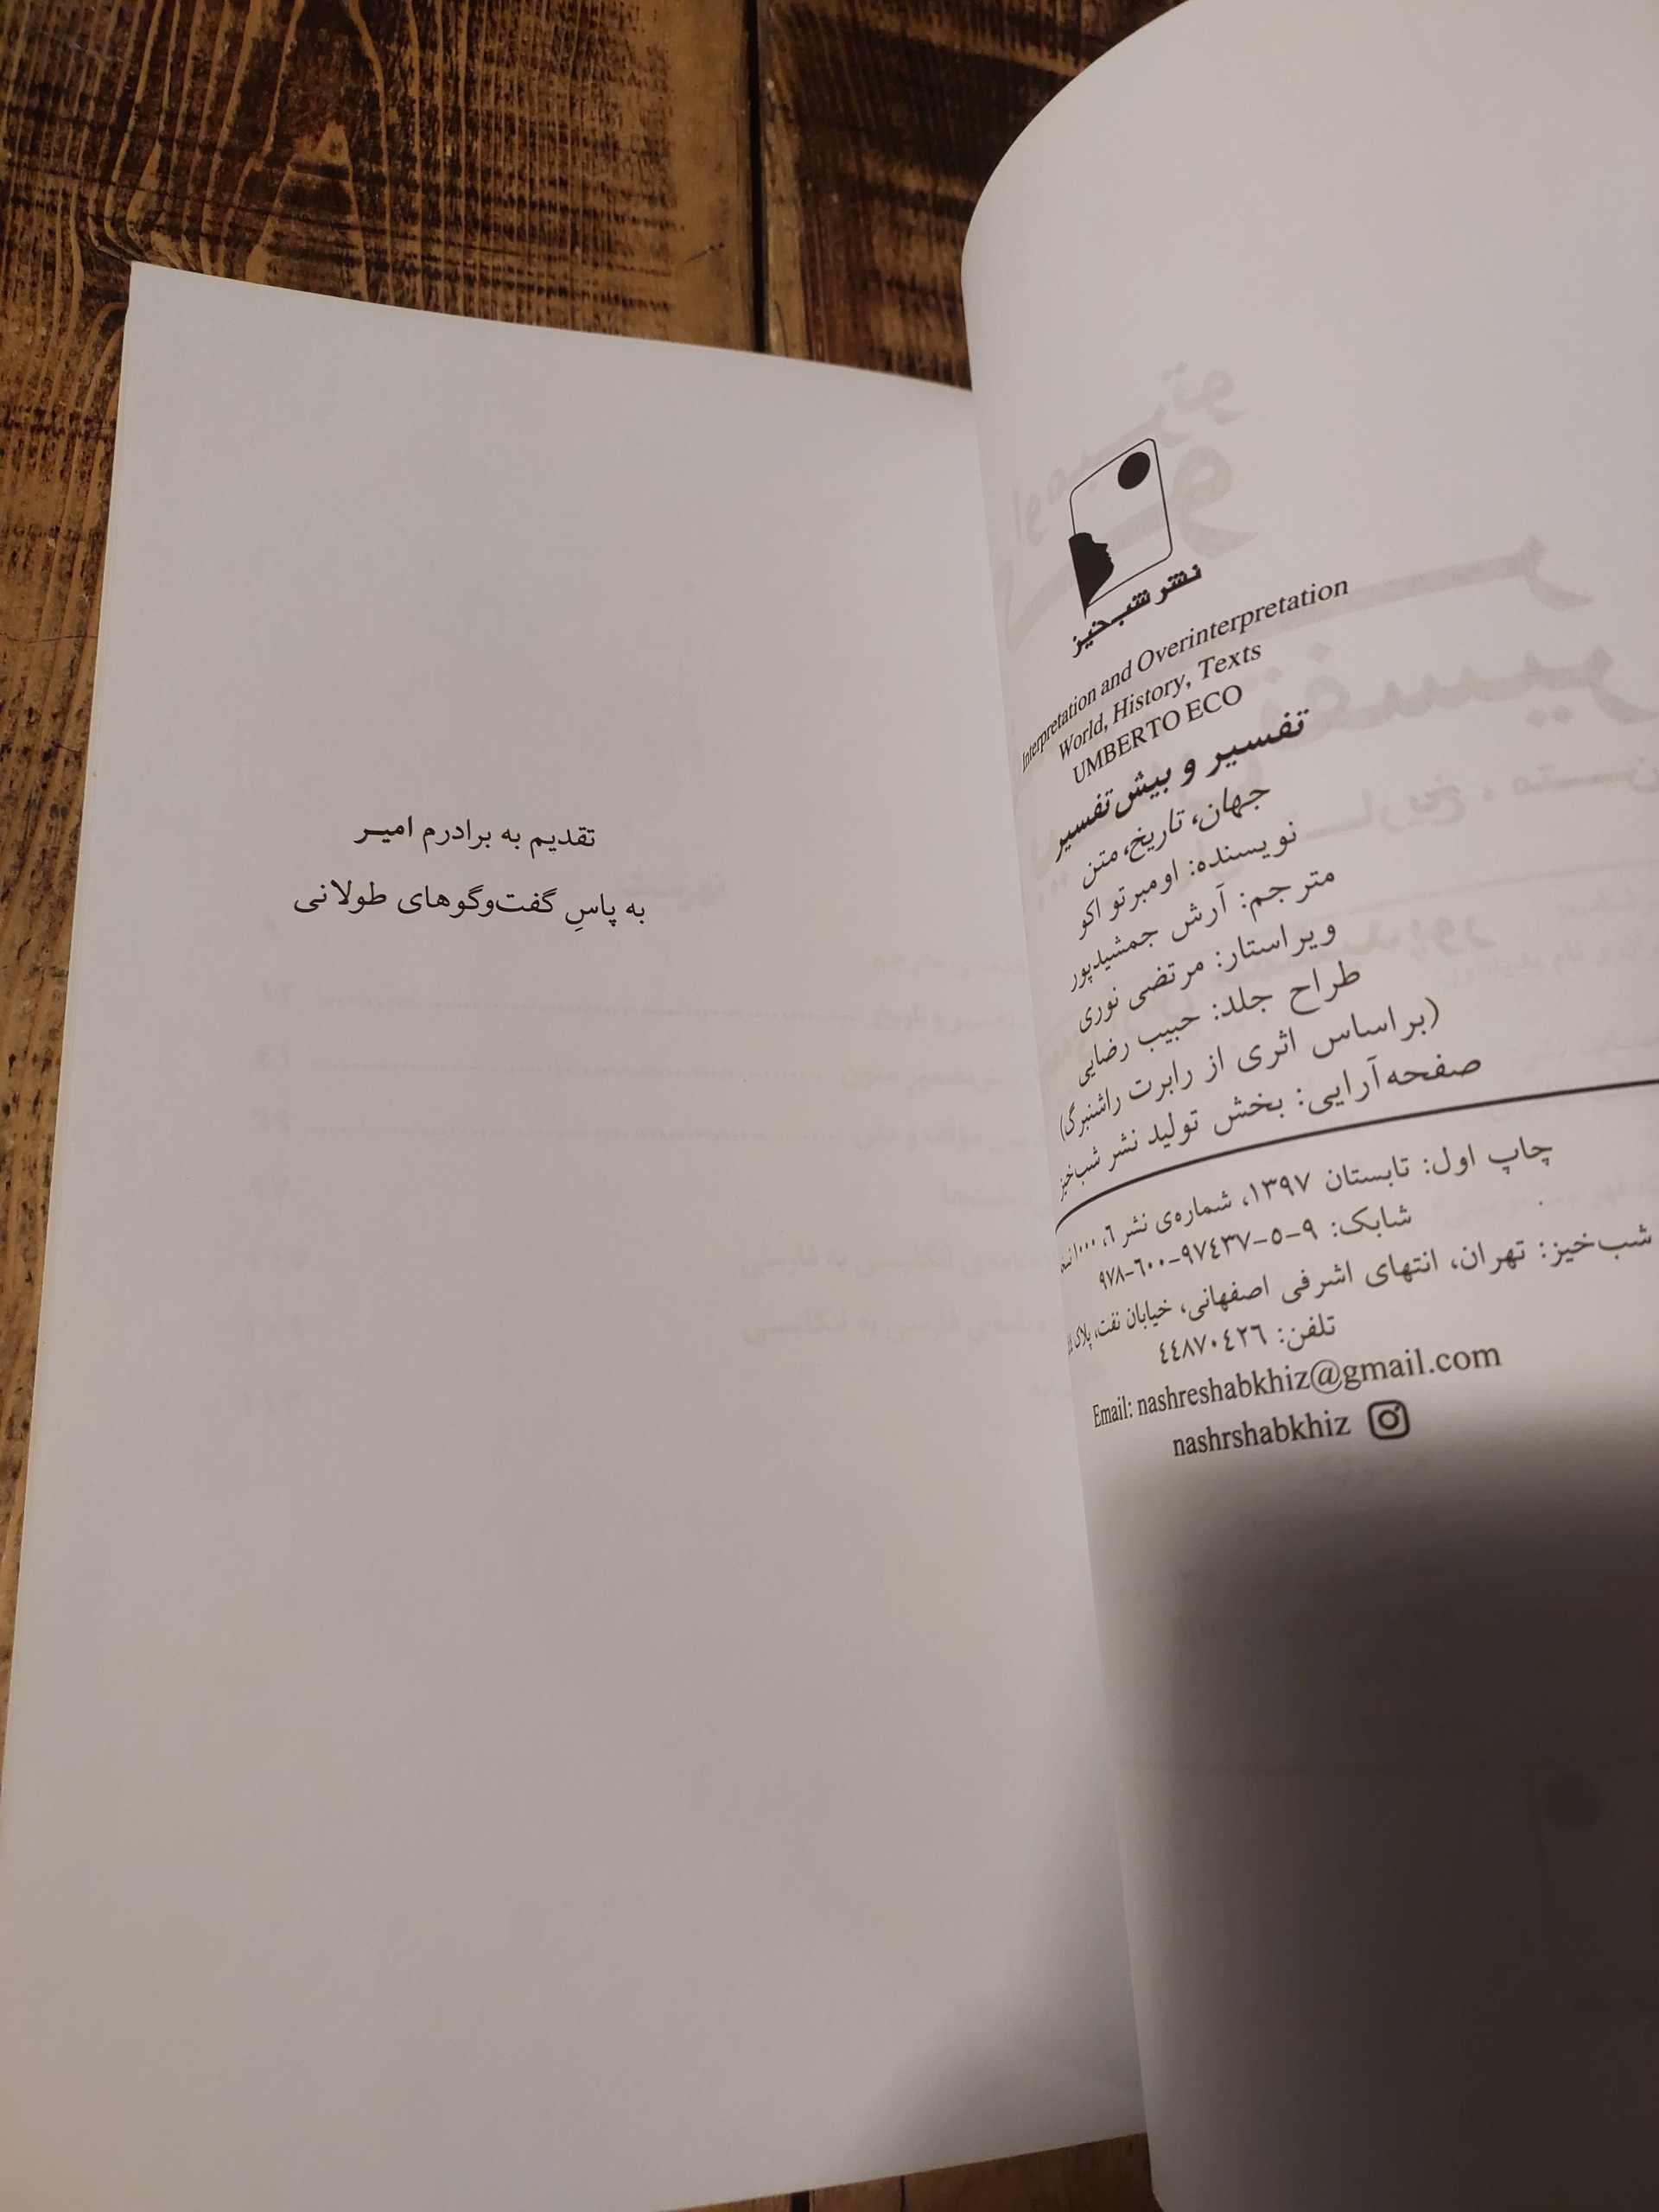 نشر شب‌خیز
Interpretation and Overinterpretation
World, History, Texts
UMBERTO ECO
تفسیر و بیش‌تفسیر
جهان، تاریخ، متن
نویسنده: اومبرتو اکو
مترجم: آرش جمشیدپور
ویراستار: مرتضی نوری
طراح جلد: حبیب رضایی
(براساس اثری از رابرت راشنبرگ)
صفحه‌آرایی: بخش تولید نشر شب‌خیز
چاپ اول: تابستان ۱۳۹۷، شماره‌ی نشر ٦، ۱۰۰۰
شابک: ۹-۵-۹۷٤۳۷-٦۰۰-۹۷۸
شب‌خیز: تهران، انتهای اشرفی اصفهانی، خیابان نفت، پلاک
تلفن: ٤٤۸۷۰٤۲٦
Email: nashreshabkhiz@gmail.com
nashrshabkhiz
تقدیم به برادرم امیر
به پاسِ گفت‌وگوهای طولانی